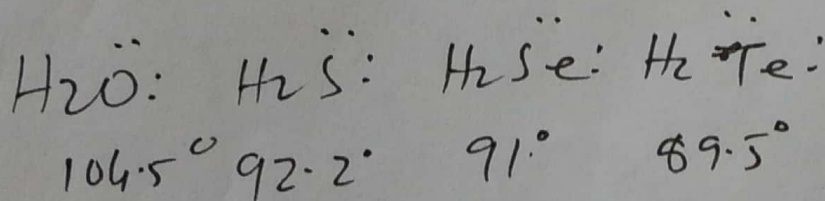 H2Ö: H2S̈: H2S̈e: H2T̈e:
104.5° 92.2° 91.° 89.5°